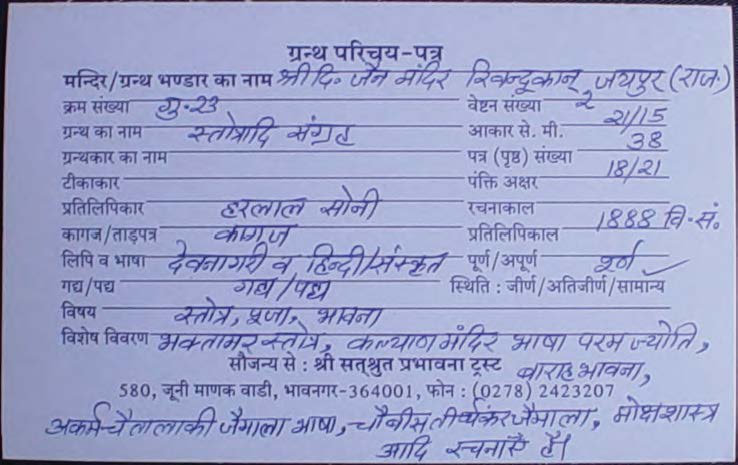 ग्रन्थ परिचय-पत्र
मन्दिर/ग्रन्थ भण्डार का नाम श्री दि॰ जैन मंदिर जयपुर (राज॰)
क्रम संख्या गु॰-23 वेष्टन संख्या 2
ग्रन्थ का नाम स्तोत्रादि संग्रह आकार से. मी. 21/15
ग्रन्थकार का नाम पत्र (पृष्ठ) संख्या 38
टीकाकार पंक्ति अक्षर 18/21
प्रतिलिपिकार हरलाल सोनी रचनाकाल
कागज/ताड़पत्र कागज प्रतिलिपिकाल 1888 वि॰सं.
लिपि व भाषा देवनागरी व हिन्दी/संस्कृत पूर्ण/अपूर्ण पूर्ण
गद्य/पद्य गद्य/पद्य स्थिति : जीर्ण/अतिजीर्ण/सामान्य ✓
विषय स्तोत्र, पूजा, भावना
विशेष विवरण भक्तामर स्तोत्र, कल्याण मंदिर भाषा परम ज्योति,
सौजन्य से : श्री सत्श्रुत प्रभावना ट्रस्ट बाराह भावना,
580, जूनी माणक वाडी, भावनगर-364001, फोन : (0278) 2423207
जैमाला भाषा, चौबीस तीर्थंकर जैमाला, मोक्षशास्त्र
आदि रचनाएँ है।